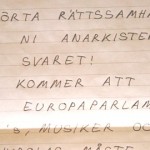 ÖRTA RÄTTSSAMHA
NI ANARKISTER
SVARET!
KOMMER ATT
EUROPAPARLAM
MUSIKER OC
MÅSTE